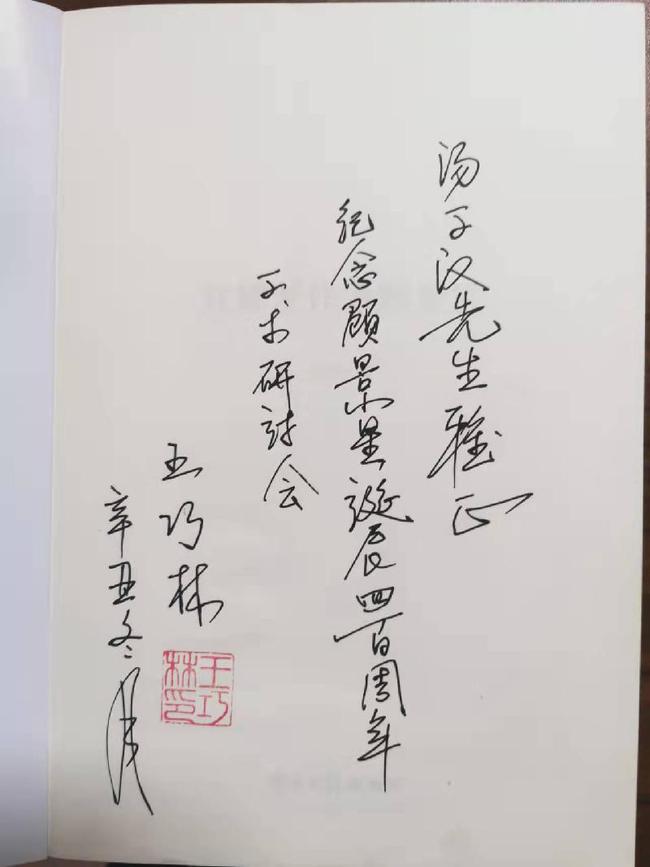 汤子汉先生雅正
纪念顾景星诞辰四百周年
学术研讨会
王巧林
辛丑冬月
王巧林印